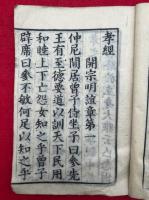 孝經
開宗明誼章第一
仲尼閒居曾子侍坐子曰參先
王有至德要道以訓天下民用
和睦上下亡怨女知之乎曾子
辟席曰參不敏何足以知之乎